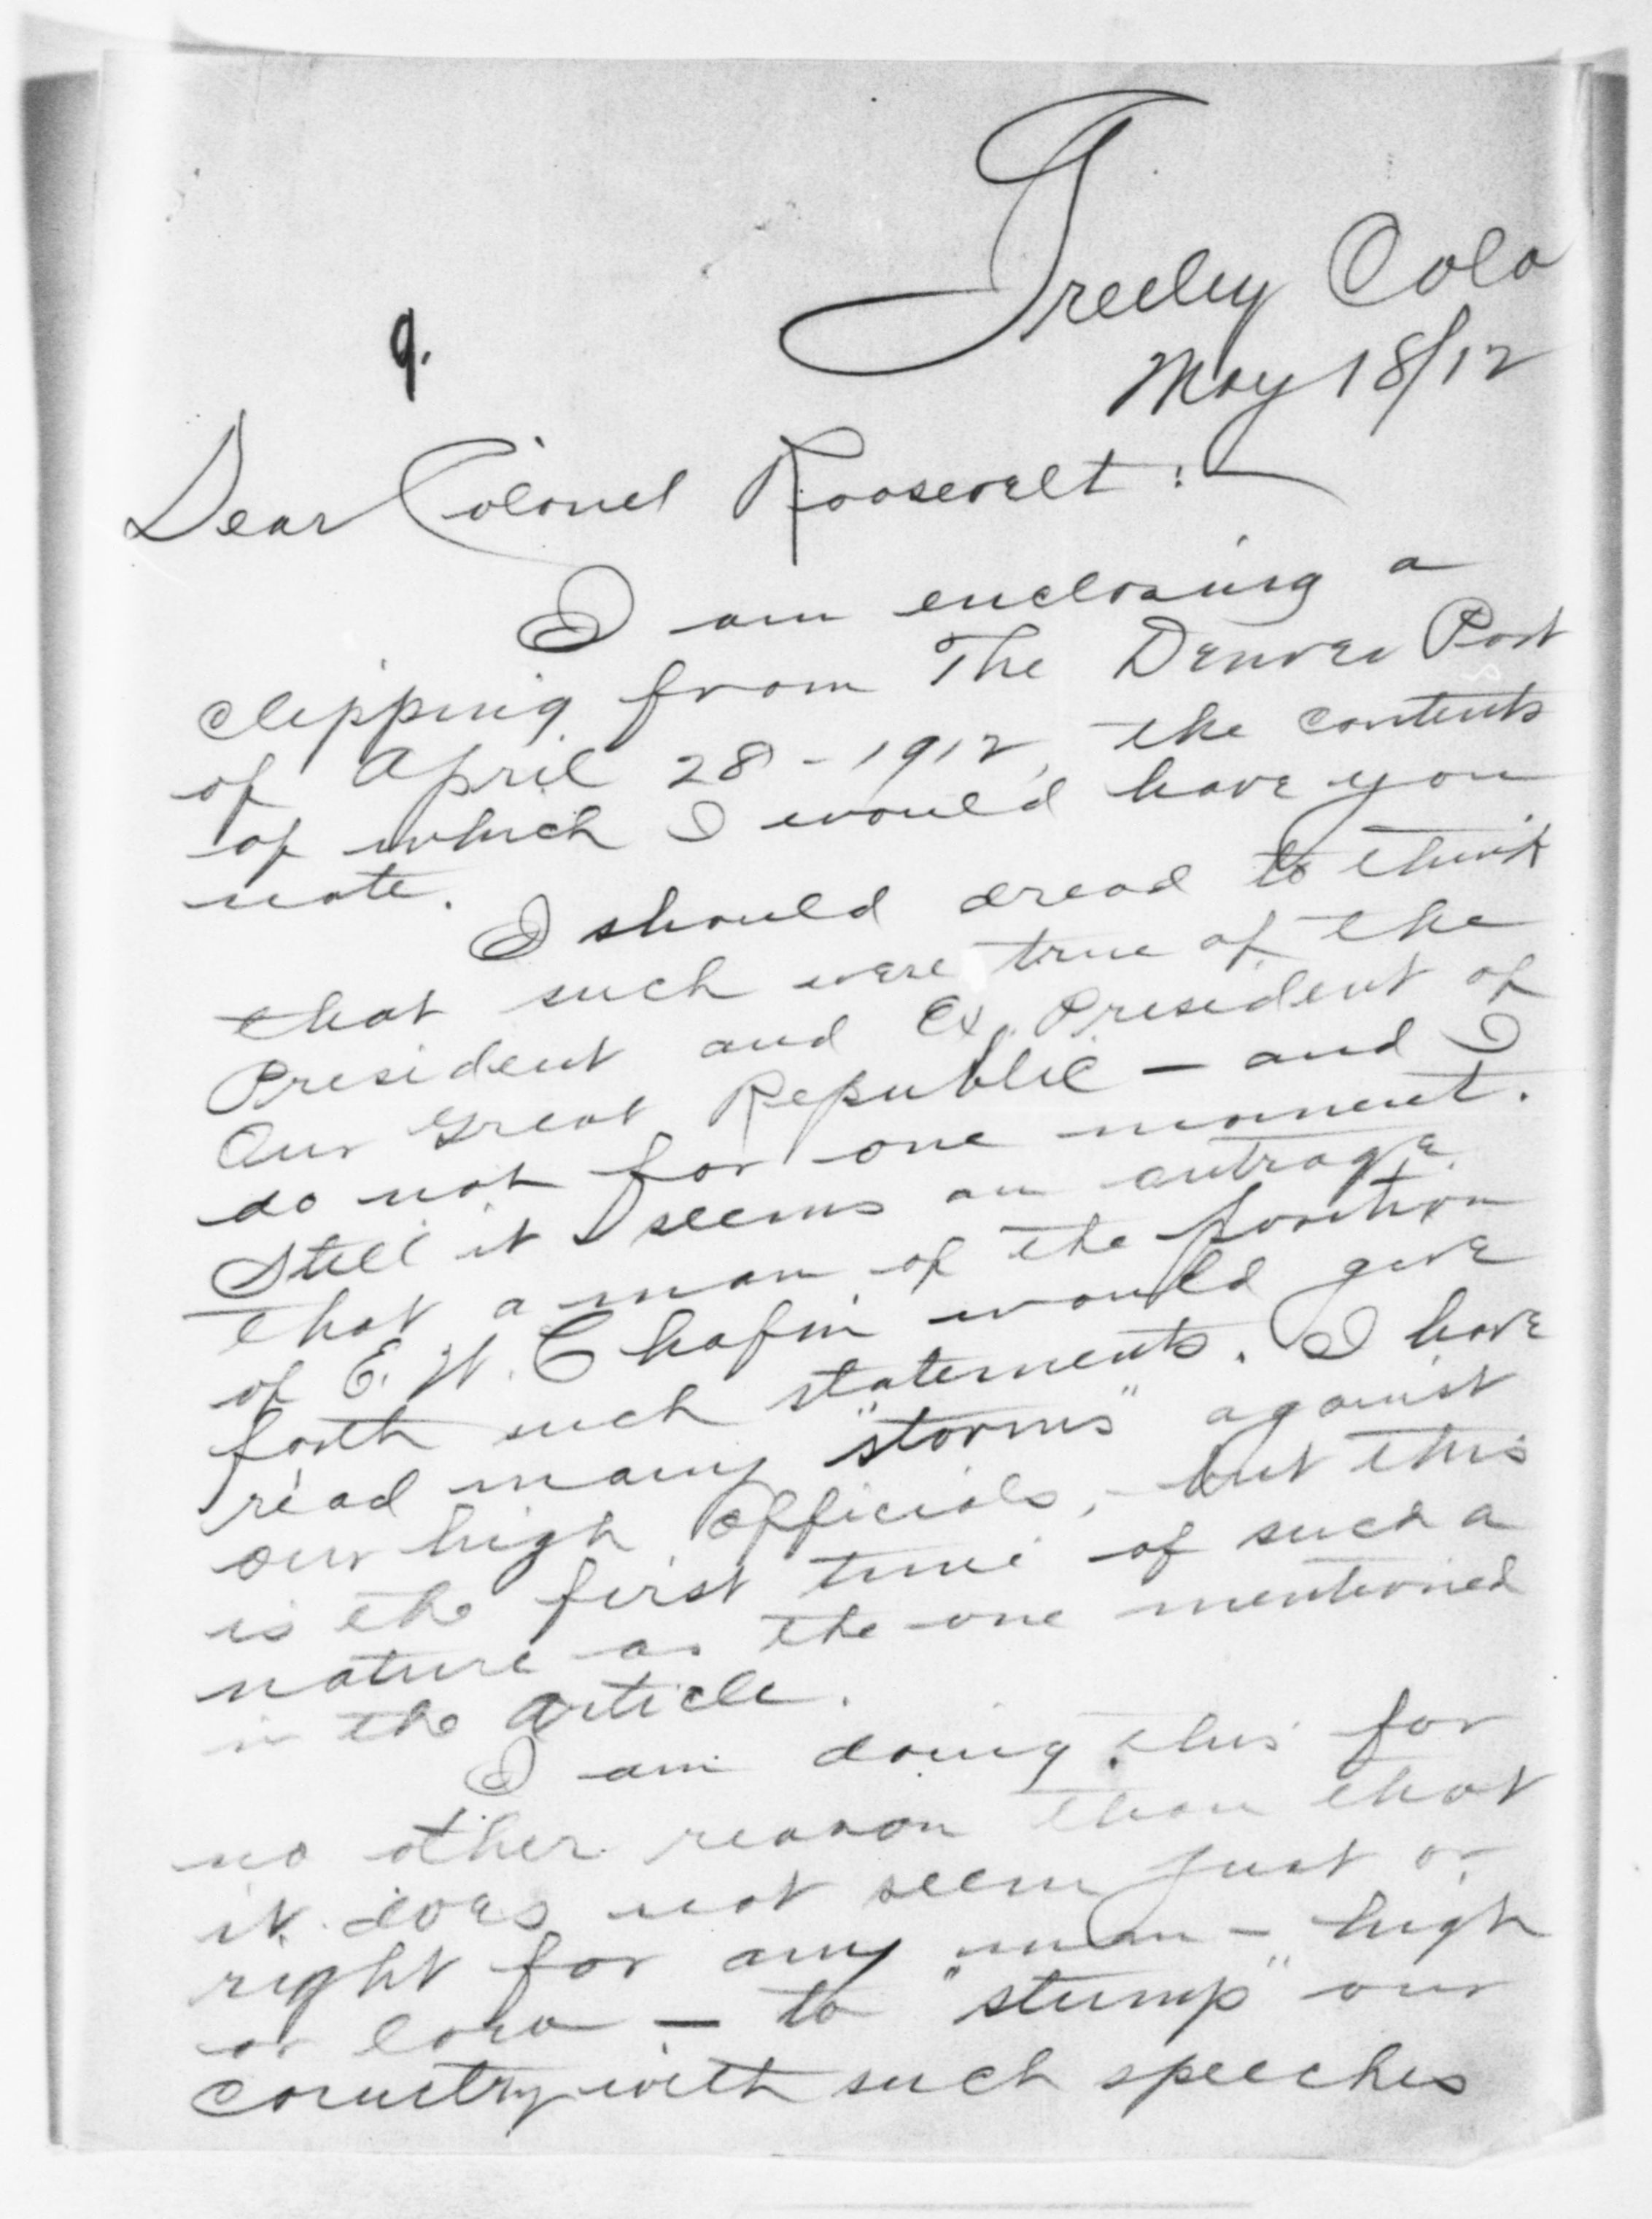 Greeley Colo
9.
May 18/12
Dear Colonel Roosevelt:
I am enclosing a
clipping from The Denver Post
of April 28-1912, the contents
of which I would have you
note.
I should dread to think
that such were true of the
President and Ex President of
Our Great Republic — and I
do not for one moment.
Still it seems an outrage
that a man of the position
of E. W. Chafin would give
forth such statements. I have
read many "storms" against
our high officials, - but this
is the first time of such a
nature as the one mentioned
in the article.
I am doing this for
no other reason than that
it does not seem just or
right for any man - high
or low — to "stump" our
country with such speeches